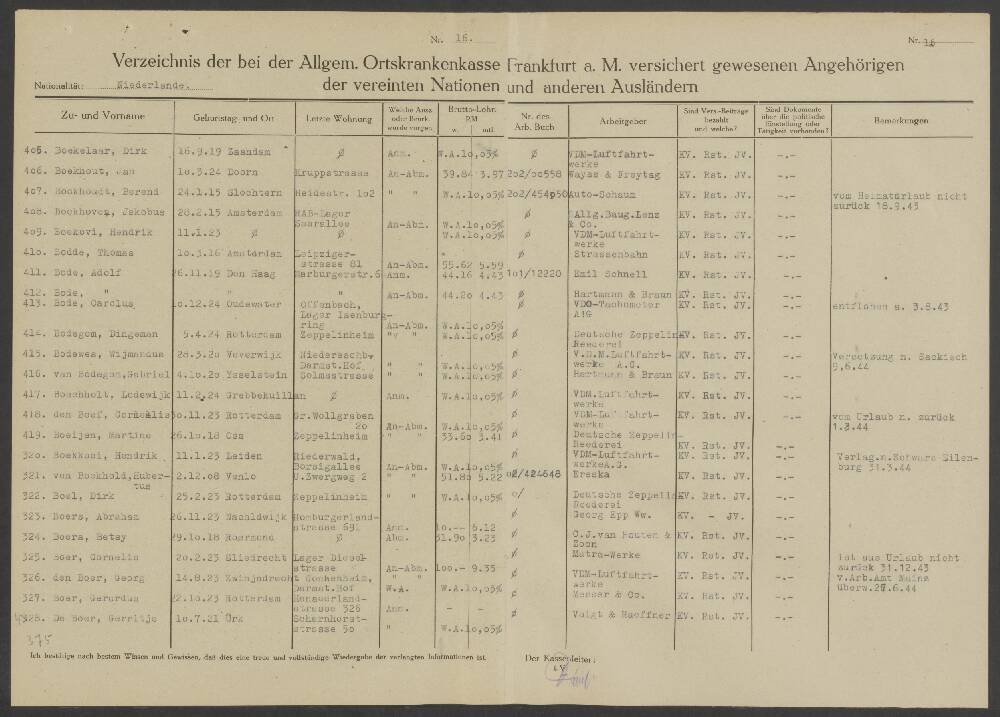 Nr. 16. Nr. 16
Verzeichnis der bei der Allgem. Ortskrankenkasse Frankfurt a. M. versichert gewesenen Angehörigen
Nationalität: Niederlande. der vereinten Nationen und anderen Ausländern
Zu- und Vorname Geburtstag und Ort Letzte Wohnung Welche Ausz. oder Beurk. wurde vorgen. Brutto-Lohn RM w. mtl. Nr. des Arb. Buch Arbeitgeber Sind Vers.-Beiträge bezahlt und welche? Sind Dokumente über die politische Einstellung oder Tätigkeit vorhanden? Bemerkungen
405. Boekelaar, Dirk 16.9.19 Zaandam ø Anm. W.A.10,05% ø VDM-Luftfahrt-werke KV. Rst. JV. -.-
406. Boekhout, Jan 10.3.24 Doorn Kruppstrasse An-Abm. 39.84 3.97 202/00558 Wayss & Freytag KV. Rst. JV. -.-
407. Boekhoudt, Berend 24.1.15 Slochtern Heidestr. 102 " " W.A.10,05% 202/454950 Auto-Schaum KV. Rst. JV. -.- vom Heimaturlaub nicht zurück 18.9.43
408. Boekhoven, Jakobus 28.2.15 Amsterdam RAB-Lager Saarallee An-Abm. W.A.10,05% ø Allg.Baug.Lenz & Co. KV. Rst. JV. -.-
409. Boekovi, Hendrik 11.1.23 ø ø W.A.10,05% ø VDM-Luftfahrt-werke KV. Rst. JV. -.-
410. Bodde, Thomas 10.3.16 Amsterdam Leipziger-strasse 81 An-Abm. 55.62 5.59 ø Strassenbahn KV. Rst. JV. -.-
411. Bode, Adolf 26.11.19 Den Haag Marburgerstr.6 Anm. 44.16 4.43 101/12220 Emil Schnell KV. Rst. JV. -.-
412. Bode, " " " An-Abm. 44.20 4.43 ø Hartmann & Braun KV. Rst. JV. -.-
413. Bode, Carolus 10.12.24 Oudewater Offenbach, Lager Isenburg-ring An-Abm. W.A.10,05% ø VDO-Tachometer A.G KV. Rst. JV. -.- entflohen a. 3.8.43
414. Bodegom, Dingeman 5.4.24 Rotterdam Zeppelinheim " " W.A.10,05% ø Deutsche Zeppelin Reederei KV. Rst. JV. -.-
415. Bodewes, Wijmandus 28.3.20 Veverwijk Niedereschb. Darmst.Hof, " " W.A.10,05% ø V.D.M.Luftfahrt-werke A.G. KV. Rst. JV. -.- Versetzung n. Sackisch 9.6.44
416. van Bodegom,Gabriel 4.10.20 Ysselstein Solmsstrasse " " W.A.10,05% ø Hartmann & Braun KV. Rst. JV. -.-
417. Boechholt, Lodewijk 11.2.24 Grebbekuillan ø Anm. W.A.10,05% ø VDM.Luftfahrt-werke KV. Rst. JV. -.-
418. den Boef, Cornelis 30.11.23 Rotterdam Gr.Wollgraben 20 An-Abm. W.A.10,05% ø VDM-Luftfahrt-werke KV. Rst. JV. -.- vom Urlaub n. zurück 1.3.44
419. Boeijen, Martine 26.10.18 Oss Zeppelinheim " " 33.60 3.41 ø Deutsche Zeppelin-Reederei KV. Rst. JV. -.-
320. Boekkooi, Hendrik 11.1.23 Leiden Riederwald, Borsigallee An-Abm. W.A.10,05% ø VDM-Luftfahrt-werkeA.G. KV. Rst. JV. -.- Verlag.n.Eilen-burg 31.3.44
321. von Boekhold,Huber-tus 2.12.08 Venlo U.Zwergweg 2 " " 51.80 5.22 02/424648 Ereska KV. Rst. JV. -.-
322. Boel, Dirk 25.2.23 Rotterdam Zeppelinheim " " W.A.10,05% ø/ Deutsche Zeppelin Reederei KV. Rst. JV. -.-
323. Boers, Abraham 26.11.23 Naaldwijk Homburgerland-strasse 691 Anm. 10.-- 6.12 ø Georg Epp Ww. KV. - JV. -.-
324. Boers, Betsy 29.10.18 Roermond ø Abm. 31.90 3.23 ø C.J.van Houten & Zoon KV. Rst. JV. -.-
325. Boer, Cornelis 20.2.23 Sliedrecht Lager Diesel-strasse An-Abm. 100.- 9.35 ø Matra-Werke KV. Rst. JV. -.- Ist aus Urlaub nicht zurück 31.12.43
326. den Boer, Georg 14.8.23 Zwinjndrecht Gonzenheim, Darmst.Hof " " W.A. W.A.10,05% ø VDM-Luftfahrt-werke KV. Rst. JV. -.- v.Arb.Amt Mainz überw.27.6.44
327. Boer, Gerardus 22.10.23 Rotterdam Hanauerland-strasse 326 Anm. - - ø Messer & Co. KV. Rst. JV. -.-
328. De Boer, Gerritje 10.7.21 Urk Scharnhorst-strasse 50 " W.A.10,05% ø Voigt & Haeffner KV. Rst. JV. -.-
375
Ich bestätige nach bestem Wissen und Gewissen, daß dies eine treue und vollständige Wiedergabe der verlangten Informationen ist. Der Kassenleiter:
i.V.